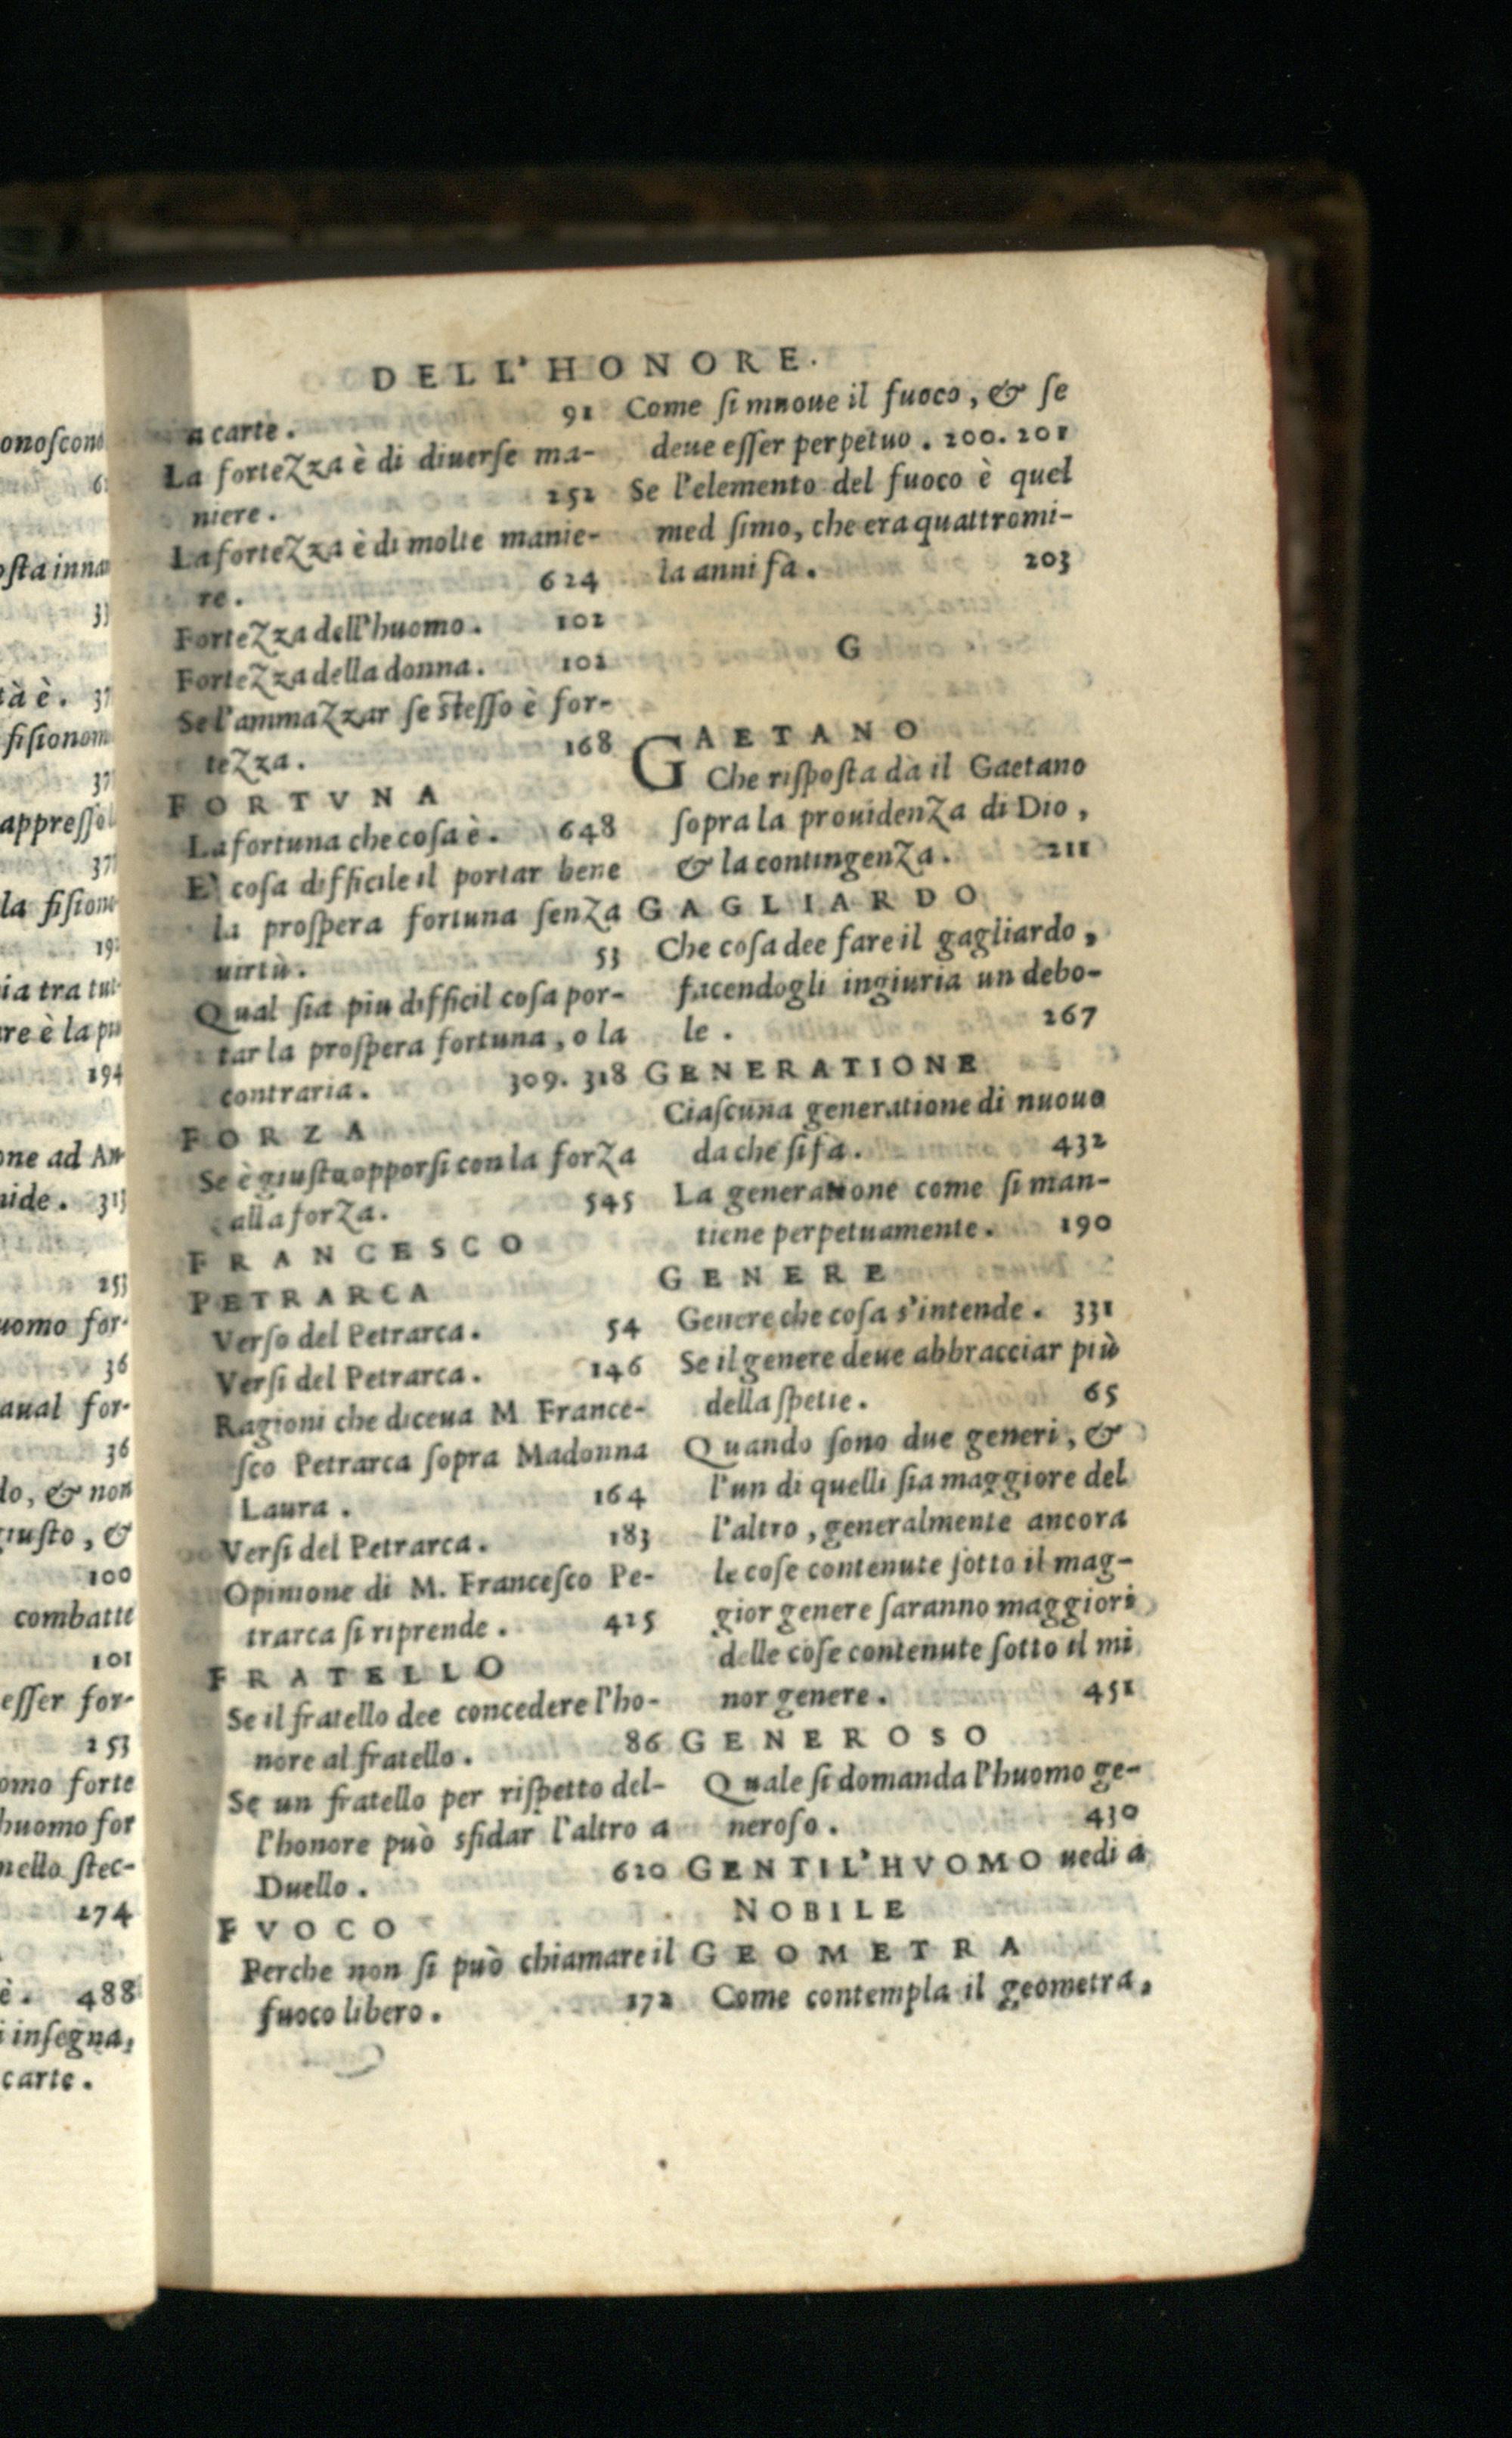 DELL'HONORE.
a carte. 91
La forteZza è di diuerse ma-
niere. 252
La forteZza è di molte manie-
re. 624
ForteZza dell'huomo. 102
ForteZza della donna. 102
Se l'ammaZzar se stesso è for-
teZza. 168
FORTVNA
La fortuna che cosa è. 648
E' cosa difficile il portar bene
la prospera fortuna senZa
uirtù. 53
Qual sia piu difficil cosa por-
tar la prospera fortuna, o la
contraria. 309. 318
FORZA
Se è giusto opporsi con la forZa
alla forZa. 545
FRANCESCO
PETRARCA
Verso del Petrarca. 54
Versi del Petrarca. 146
Ragioni che diceua M France-
sco Petrarca sopra Madonna
Laura. 164
Versi del Petrarca. 183
Opinione di M. Francesco Pe-
trarca si riprende. 425
FRATELLO
Se il fratello dee concedere l'ho-
nore al fratello. 86
Se un fratello per rispetto del-
l'honore può sfidar l'altro a
Duello. 620
FVOCO
Perche non si può chiamare il
fuoco libero. 172
Come si mnoue il fuoco, & se
deue esser perpetuo. 200. 201
Se l'elemento del fuoco è quel
med simo, che era quattromi-
la anni fa. 203
G
GAETANO
Che risposta da il Gaetano
sopra la prouidenZa di Dio,
& la contingenZa. 211
GAGLIARDO
Che cosa dee fare il gagliardo,
facendogli ingiuria un debo-
le. 267
GENERATIONE
Ciascuna generatione di nuouo
da che si fa. 432
La generatione come si man-
tiene perpetuamente. 190
GENERE
Genere che cosa s'intende. 331
Se il genere deue abbracciar più
della spetie. 65
Quando sono due generi, &
l'un di quelli sia maggiore del
l'altro, generalmente ancora
le cose contenute sotto il mag-
gior genere saranno maggiori
delle cose contenute sotto il mi
nor genere. 451
GENEROSO
Quale si domanda l'huomo ge-
neroso. 430
GENTIL'HVOMO uedi a
NOBILE
GEOMETRA
Come contempla il geometra,